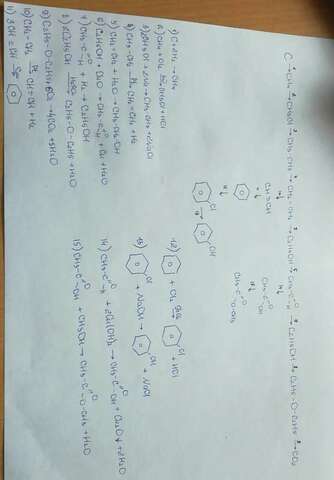 C → CH₄ → CH₃Cl → CH₃-CH₃ → CH₂=CH₂ → C₂H₅OH → CH₃-C-H → C₂H₅OH → C₂H₅-O-C₂H₅ → CO₂
CH≡CH
CH₃-C-OH
CH₃-C-O-CH₃
Cl
OH
1) C + 2H₂ → CH₄
2) CH₄ + Cl₂ → CH₃Cl + HCl
3) 2CH₃Cl + 2Na → CH₃-CH₃ + 2NaCl
4) CH₃-CH₃ → CH₂=CH₂ + H₂
5) CH₂=CH₂ + H₂O → CH₃-CH₂-OH
6) C₂H₅OH + CuO → CH₃-C-H + Cu + H₂O
7) CH₃-C-H + H₂ → C₂H₅OH
8) 2C₂H₅OH → C₂H₅-O-C₂H₅ + H₂O
9) C₂H₅-O-C₂H₅ + 6O₂ → 4CO₂ + 5H₂O
10) CH₂=CH₂ → CH≡CH + H₂
11) 3CH≡CH →
12) + Cl₂ → Cl + HCl
13) Cl + NaOH → OH + NaCl
14) CH₃-C-H + 2Cu(OH)₂ → CH₃-C-OH + Cu₂O↓ + 2H₂O
15) CH₃-C-OH + CH₃OH → CH₃-C-O-CH₃ + H₂O